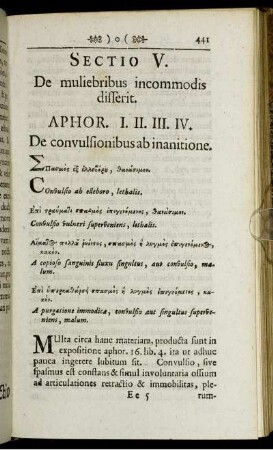 ) o ( 441
SECTIO V.
De muliebribus incommodis
disserit.
APHOR. I. II. III. IV.
De convulsionibus ab inanitione.
Σπασμὸς ἐξ ἐλλεβόρου, θανάσιμον.
Convulsio ab elleboro, lethalis.
Ἐπὶ τραύματι σπασμὸς ἐπιγενόμενος, θανάσιμον.
Convulsio vulneri superveniens, lethalis.
Αἵματος πολλοῦ ῥυέντος, σπασμὸς ἢ λυγμὸς ἐπιγενόμενος,
κακόν.
A copioso sanguinis fluxu singultus, aut convulsio, ma-
lum.
Ἐπὶ ὑπερκαθάρσει σπασμὸς ἢ λυγμὸς ἐπιγενόμενος, κα-
κόν.
A purgatione immodica, convulsio aut singultus superve-
niens, malum.
MUlta circa hanc materiam, producta sunt in
expositione aphor. 16. lib. 4. ita ut adhuc
pauca ingerere lubitum sit. Convulsio, sive
spasmus est constans & simul involuntaria ossium
ad articulationes retractio & immobilitas, ple-
E e 5 rum-